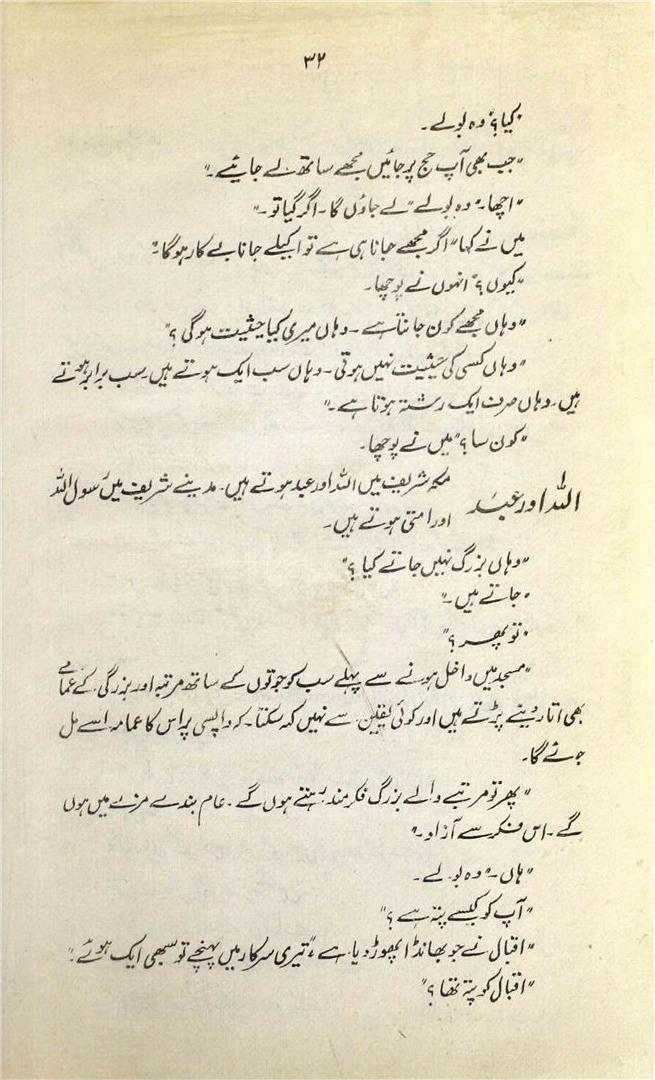 ۳۲
"کیا؟" وہ بولے۔
"جب بھی آپ حج پر جائیں مجھے ساتھ لے جائیے۔"
"اچھا۔" وہ بولے "لے جاؤں گا۔ اگر گیا تو۔"
میں نے کہا "اگر مجھے جانا ہی ہے تو اکیلے جانا بے کار ہوگا۔"
"کیوں؟" انہوں نے پوچھا۔
"وہاں مجھے کون جانتا ہے۔ وہاں میری کیا حیثیت ہوگی؟"
"وہاں کسی کی حیثیت نہیں ہوتی۔ وہاں سب ایک ہوتے ہیں۔ سب برابر ہوتے
ہیں۔ وہاں صرف ایک رشتہ ہوتا ہے۔"
"کون سا؟" میں نے پوچھا۔
اللہ اور عبد
مکہ شریف میں اللہ اور عبد ہوتے ہیں۔ مدینے شریف میں رسول اللہ
اور امتی ہوتے ہیں۔
"وہاں بزرگ نہیں جاتے کیا؟"
"جاتے ہیں۔"
"تو پھر؟"
"مسجد میں داخل ہونے سے پہلے سب کو جوتوں کے ساتھ مرتبہ اور بزرگی کے عمامے
بھی اتار دینے پڑتے ہیں اور کوئی یقین سے نہیں کہہ سکتا۔ کہ واپسی پر اس کا عمامہ اسے مل
جائے گا۔
"پھر تو مرتبے والے بزرگ فکر مند رہتے ہوں گے۔ عام بندے مزے میں ہوں
گے۔ اس فکر سے آزاد۔"
"ہاں۔" وہ بولے۔
"آپ کو کیسے پتہ ہے؟"
"اقبال نے جو بھانڈا پھوڑ دیا ہے، "تیری سرکار میں پہنچے تو سبھی ایک ہوئے۔"
"اقبال کو پتہ تھا؟"